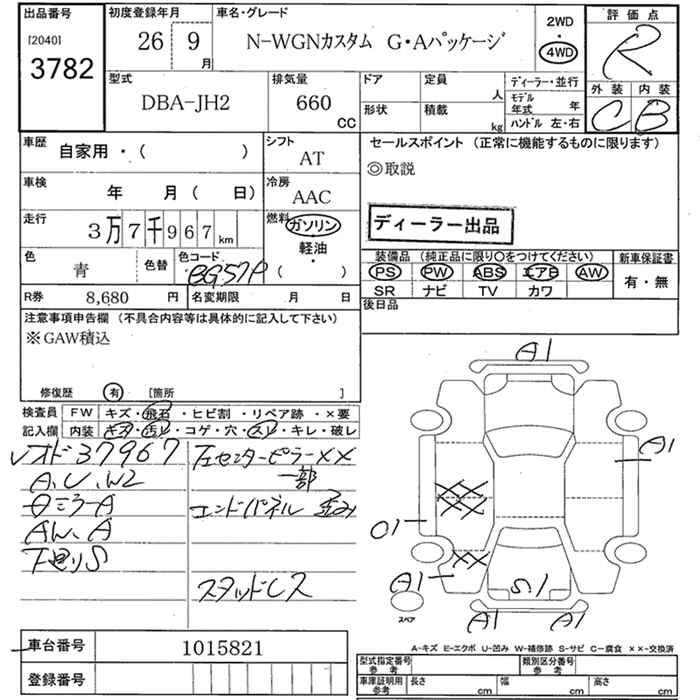 出品番号 初度登録年月 車名・グレード 2WD 評価点
[2040] 3782 26 9月 N-WGNカスタム G・Aパッケージ 4WD R
型式 排気量 ドア 定員 人 ディーラー・並行 外装 内装
DBA-JH2 660 CC 形状 積載 kg モデル年式 年 C B
ハンドル 左・右
車歴 自家用・( ) シフト AT セールスポイント (正常に機能するものに限ります)
◎取説
車検 年 月 ( 日) 冷房 AAC
走行 3万7千967km 燃料 ガソリン ディーラー出品
軽油
・
( )
色 青 色替 色コード BG57P
装備品 (純正品に限り○をつけてください) 新車保証書
PS PW ABS エアB AW 有・無
SR ナビ TV カワ
R券 8,680 円 名変期限 月 日 後日品
注意事項申告欄 (不具合内容等は具体的に記入して下さい)
※GAW積込
修復歴 有 [箇所 ]
検査員 FW キズ・飛石・ヒビ割・リペア跡・×要
記入欄 内装 キズ・汚レ・コゲ・穴・スレ・キレ・破レ
レオド37967 左センターピラーXX
A、U、W2 一部
A エンドパネル 歪み
AW、A
下廻りS
スタッドレス
A1
A1
XX
01
XX
A1 S1
スペア
A1 A1
A-キズ E-エクボ U-凹み W-補修跡 S-サビ C-腐食 ××-交換済
車台番号 1015821
登録番号
型式指定番号 参考 類別区分番号 参考
車庫証明用 参考 長さ cm 幅 cm 高さ cm